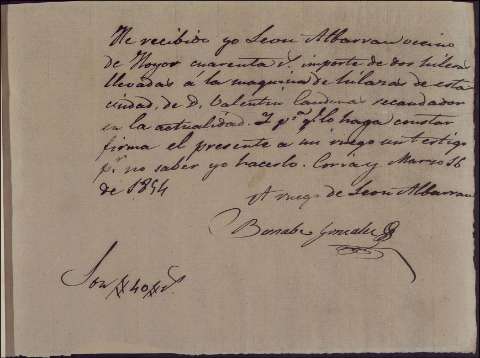 He recibido yo Leon Albarran vecino
de Hoyos cuarenta rs. importe de dos
llevadas á la maquina de hilazas de esta
ciudad, de D. Valentin recaudador
en la actualidad. Y pa. q. lo haga constar
firma el presente a mi ruego un testigo
pr. no saber yo hacerlo. Coria y Marzo 16
de 1854
A ruego de Leon Albarran
Bernabe Gonzalez
Son 40 rs.